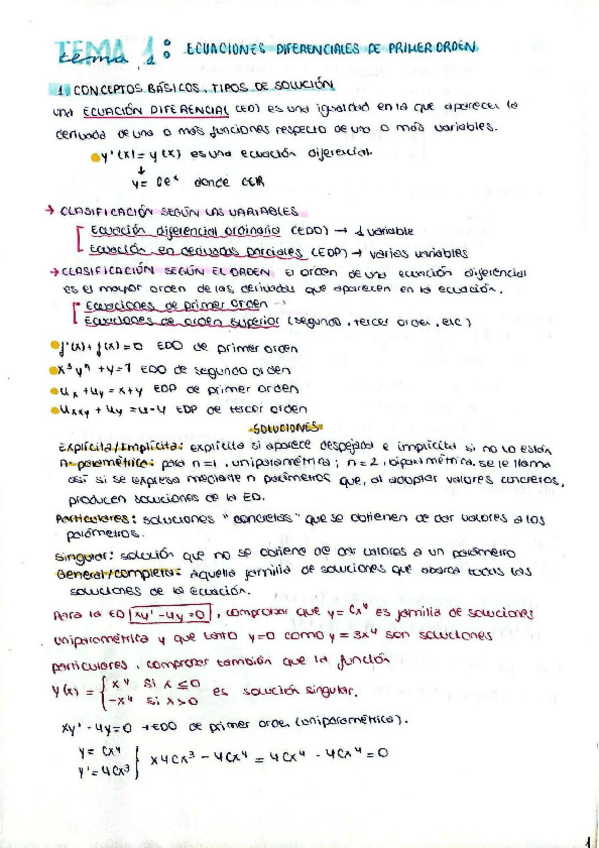 TEMA 1: ECUACIONES DIFERENCIALES DE PRIMER ORDEN
tema 1
1. CONCEPTOS BÁSICOS. TIPOS DE SOLUCIÓN
una ECUACIÓN DIFERENCIAL (ED) es una igualdad en la que aparecer la
derivada de una o más funciones respecto de una o más variables.
y'(x) = y(x) es una ecuación diferencial.
↓
y = Ceˣ donde C∈ℝ
→ CLASIFICACIÓN SEGÚN LAS VARIABLES
Ecuación diferencial ordinaria (EDO) → 1 variable
Ecuación en derivadas parciales (EDP) → varias variables
→ CLASIFICACIÓN SEGÚN EL ORDEN El orden de una ecuación diferencial
es el mayor orden de las derivadas que aparecen en la ecuación.
Ecuaciones de primer orden
Ecuaciones de orden superior (segundo, tercer orden, etc)
f'(x) + f(x) = 0 EDO de primer orden
x³y'' + y = 7 EDO de segundo orden
uₓ + u_y = x + y EDP de primer orden
uₓₓy + u_y = u - 4 EDP de tercer orden
SOLUCIONES
Explícita/Implícita: explícita si aparece despejada e implícita si no lo están
n-paramétrica: para n=1, uniparamétrica; n=2, biparamétrica. se le llama
así si se expresa mediante n parámetros que, al adoptar valores concretos,
producen soluciones de la ED.
Particulares: soluciones "concretas" que se obtienen de dar valores a los
parámetros.
Singular: solución que no se obtiene de dar valores a un parámetro
General/completa: Aquella familia de soluciones que abarca todas las
soluciones de la ecuación.
Para la ED xy' - 4y = 0, comprobar que y = Cx⁴ es familia de soluciones
uniparamétrica y que tanto y=0 como y = 3x⁴ son soluciones
particulares, comprobar también que la función
y(x) = { x⁴ si x ≤ 0
-x⁴ si x > 0 es solución singular.
xy' - 4y = 0 → EDO de primer orden (uniparamétrica).
y = Cx⁴
y' = 4Cx³ } x4Cx³ - 4Cx⁴ = 4Cx⁴ - 4Cx⁴ = 0
1